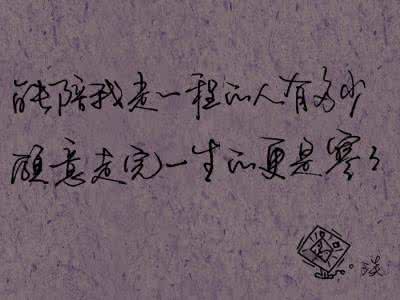 能陪我走一程的人有多少
愿意走完一生的更是寥寥